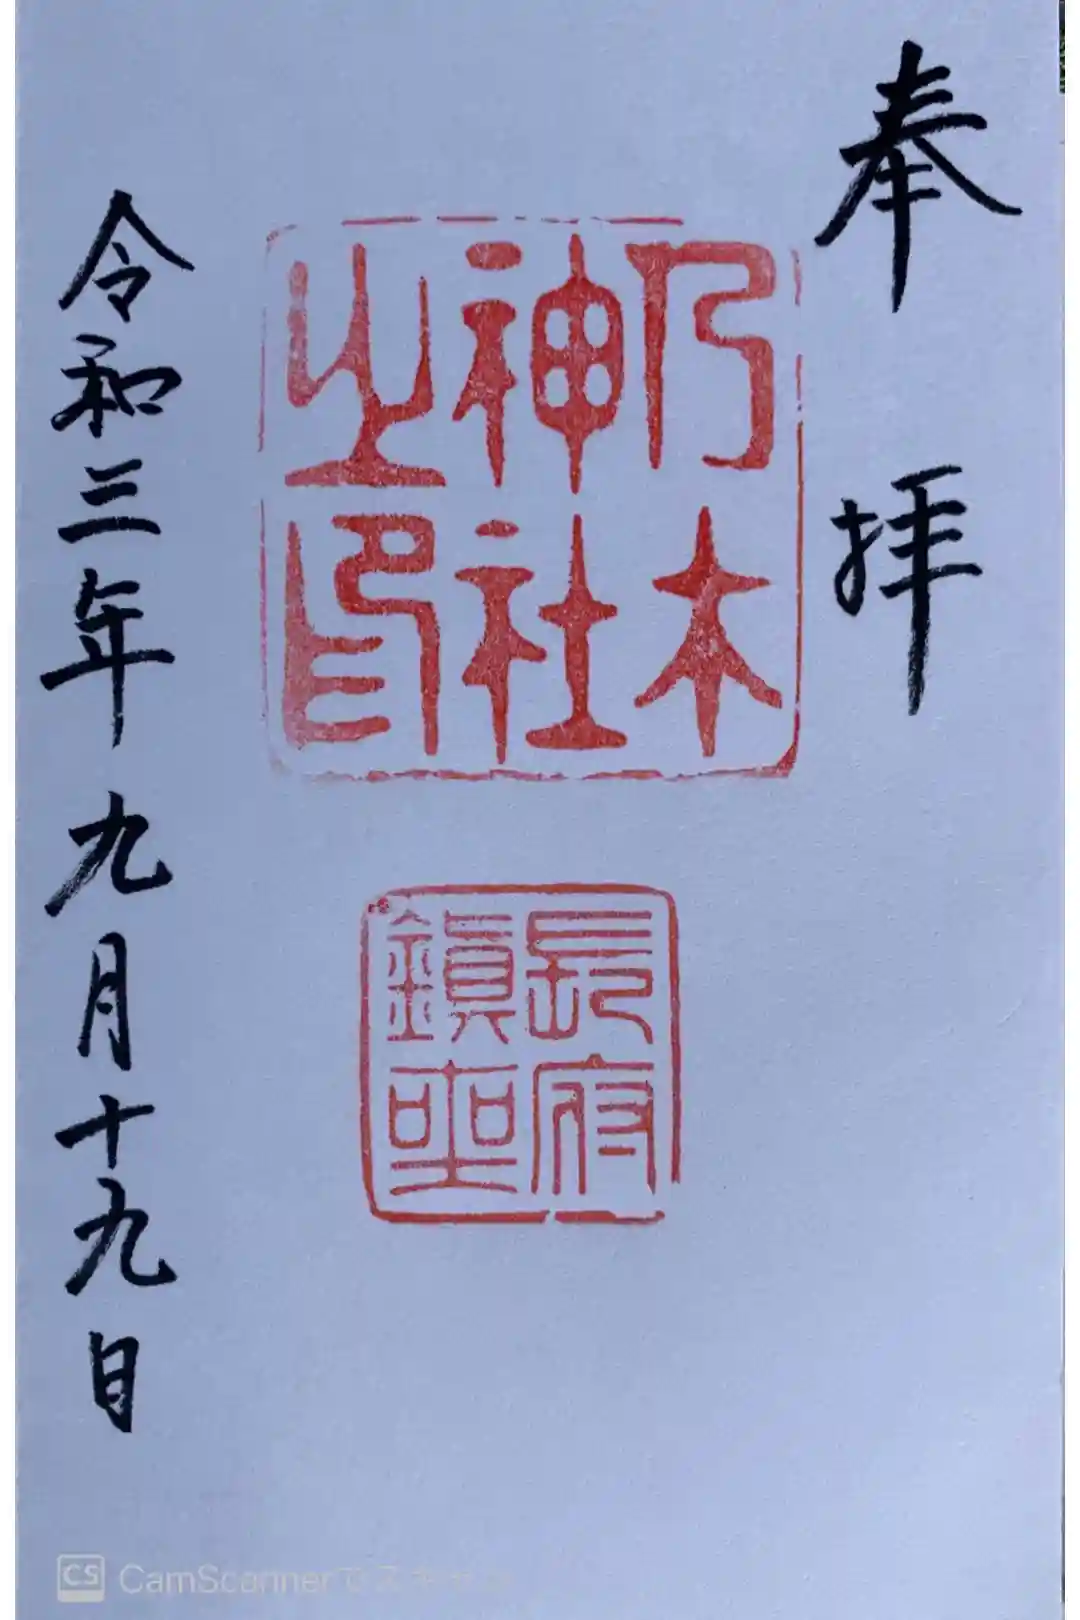 奉拝
乃木
神社
之印
長府
鎮座
令和三年九月十九日
CS CamScannerでスキャン